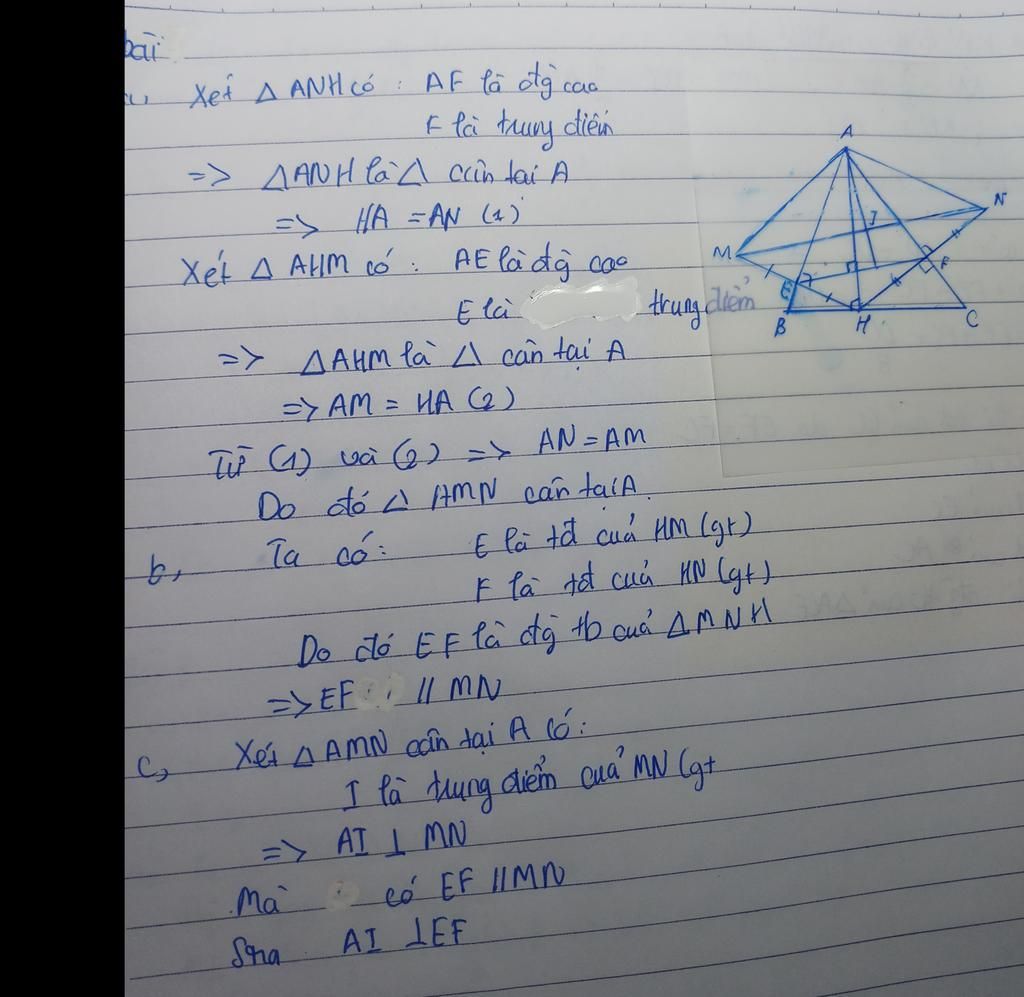 bài
Xét △ ANH có : AF là đg cao
F là trung điểm
=> △ANH là △ cân tại A
=> HA = AN (1)
Xét △ AHM có : AE là đg cao
E là trung điểm
=> △AHM là △ cân tại A
=> AM = HA (2)
Từ (1) và (2) => AN = AM
Do đó △ AMN cân tại A.
b, Ta có: E là tđ cuả HM (gt)
F là tđ cuả HN (gt)
Do đó EF là đg tb cuả △MNH
=> EF // MN
c, Xét △AMN cân tại A có:
I là trung điểm cuả MN (gt
=> AI ⊥ MN
Mà có EF // MN
AI ⊥ EF
A
N
I
M
F
E
B
H
C